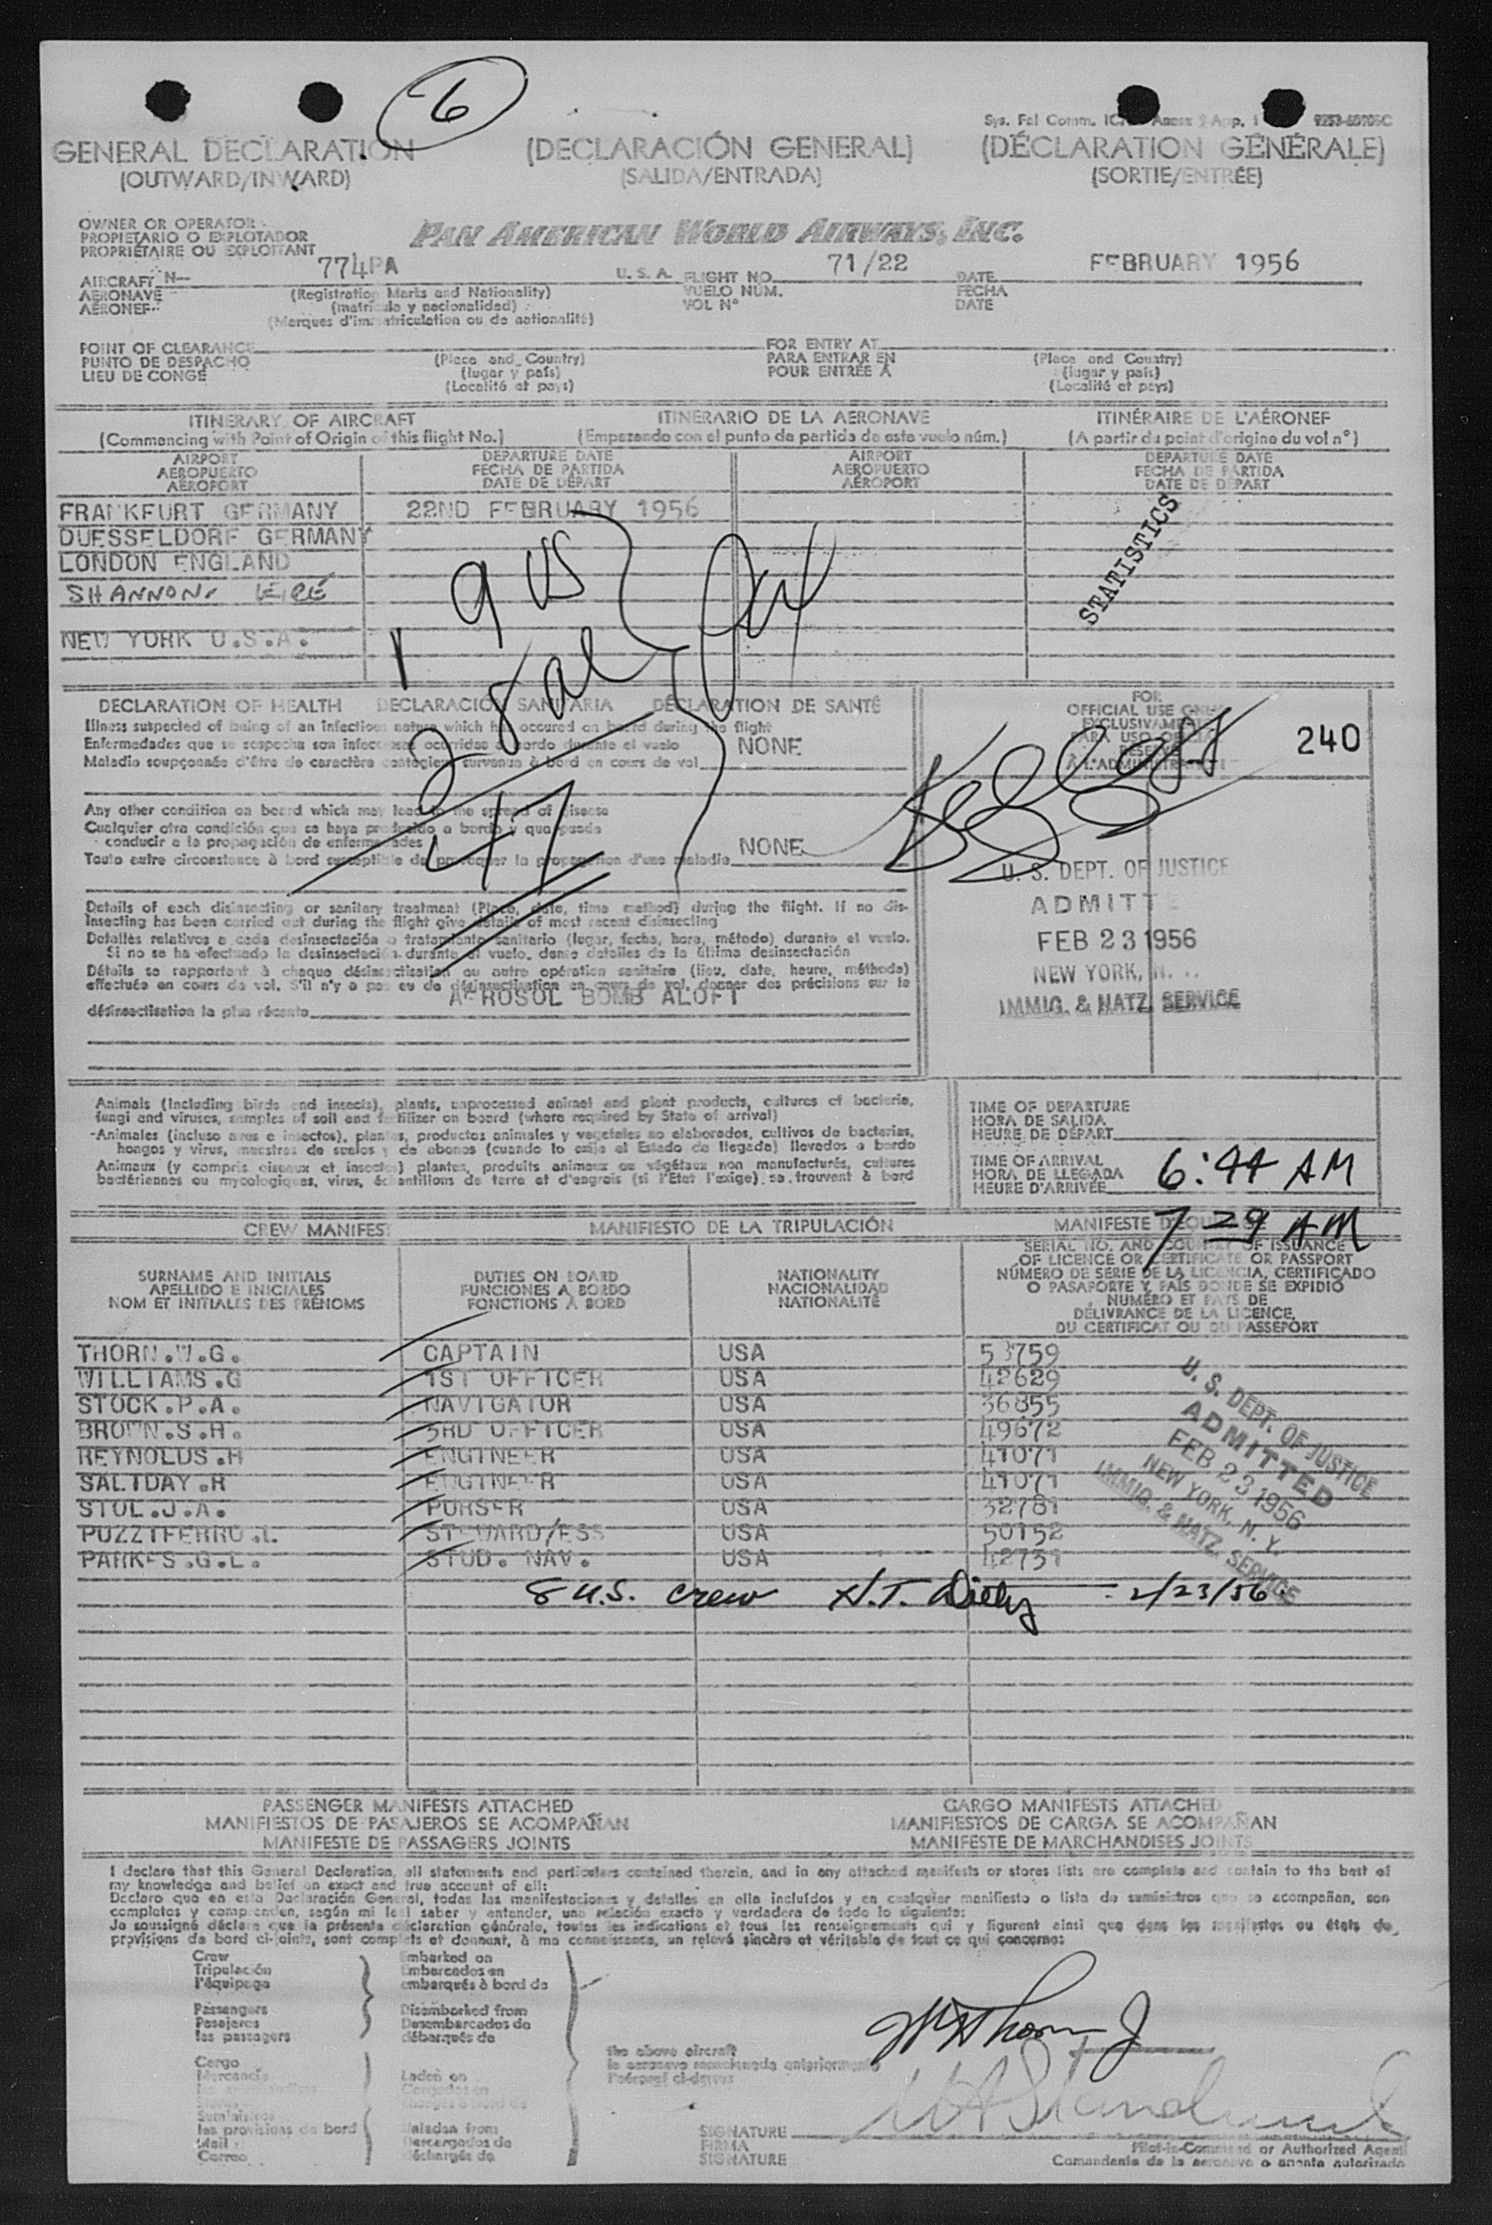 6
Sys. Fal Comm. Annex 9 App. 1
GENERAL DECLARATION (DECLARACIÓN GENERAL) (DÉCLARATION GÉNÉRALE)
(OUTWARD/INWARD) (SALIDA/ENTRADA) (SORTIE/ENTRÉE)
OWNER OR OPERATOR
PROPIETARIO O EXPLOTADOR PAN AMERICAN WORLD AIRWAYS, INC.
PROPRIÉTAIRE OU EXPLOITANT
AIRCRAFT N— 774PA U. S. A. FLIGHT NO. 71/22 DATE FEBRUARY 1956
AERONAVE (Registration Marks and Nationality) VUELO NÚM. FECHA
AÉRONEF (matrícula y nacionalidad) VOL N° DATE
(Marques d'immatriculation ou de nationalité)
POINT OF CLEARANCE FOR ENTRY AT
PUNTO DE DESPACHO (Place and Country) PARA ENTRAR EN (Place and Country)
LIEU DE CONGÉ (lugar y país) POUR ENTRÉE À (lugar y país)
(Localité et pays) (Localité et pays)
ITINERARY OF AIRCRAFT ITINERARIO DE LA AERONAVE ITINÉRAIRE DE L'AÉRONEF
(Commencing with Point of Origin of this flight No.) (Empezando con el punto de partida de este vuelo núm.) (A partir du point d'origine du vol n°)
AIRPORT DEPARTURE DATE AIRPORT DEPARTURE DATE
AEROPUERTO FECHA DE PARTIDA AEROPUERTO FECHA DE PARTIDA
AÉROPORT DATE DE DÉPART AÉROPORT DATE DE DÉPART
FRANKFURT GERMANY 22ND FEBRUARY 1956
DUESSELDORF GERMANY
LONDON ENGLAND
SHANNON, EIRE
NEW YORK U.S.A.
STATISTICS
9 US
8 al
47
DECLARATION OF HEALTH DECLARACIÓN SANITARIA DÉCLARATION DE SANTÉ
Illness suspected of being of an infectious nature which has occured on board during the flight
Enfermedades que se sospecha son infecciosas ocurridas a bordo durante el vuelo NONE
Maladie soupçonnée d'être de caractère contagieux survenue à bord en cours de vol
FOR
OFFICIAL USE ONLY
EXCLUSIVAMENTE
PARA USO OFICIAL
RESERVÉ
À L'ADMINISTRATION
240
Any other condition on board which may lead to the spread of disease
Cualquier otra condición que se haya producido a bordo y que pueda
conducir a la propagación de enfermedades
Toute autre circonstance à bord susceptible de provoquer la propagation d'une maladie NONE
U. S. DEPT. OF JUSTICE
ADMITTE
FEB 23 1956
NEW YORK, N.
IMMIG. & NATZ. SERVICE
Details of each disinsecting or sanitary treatment (Place, date, time method) during the flight. If no dis-
insecting has been carried out during the flight give details of most recent disinsecting
Detalles relativos a cada desinsectación o tratamiento sanitario (lugar, fecha, hora, método) durante el vuelo.
Si no se ha efectuado la desinsectación durante el vuelo, dense detalles de la última desinsectación
Détails se rapportant à chaque désinsectisation ou autre opération sanitaire (lieu, date, heure, méthode)
effectuée en cours de vol. S'il n'y a pas eu de désinsectisation en cours de vol, donner des précisions sur la
désinsectisation la plus récente AEROSOL BOMB ALOFT
Animals (Including birds and insects), plants, unprocessed animal and plant products, cultures of bacteria,
fungi and viruses, samples of soil and fertilizer on board (where required by State of arrival)
Animales (incluso aves e insectos), plantas, productos animales y vegetales no elaborados, cultivos de bacterias,
hongos y virus, muestras de suelos y de abonos (cuando lo exija el Estado de llegada) llevados a bordo
Animaux (y compris oiseaux et insectes) plantes, produits animaux ou végétaux non manufacturés, cultures
bactériennes ou mycologiques, virus, échantillons de terre et d'engrais (si l'Etat l'exige) se trouvent à bord
TIME OF DEPARTURE
HORA DE SALIDA
HEURE DE DÉPART
TIME OF ARRIVAL
HORA DE LLEGADA 6:44 AM
HEURE D'ARRIVÉE
7 29 AM
CREW MANIFEST MANIFIESTO DE LA TRIPULACIÓN MANIFESTE D'ÉQUIPAGE
SURNAME AND INITIALS DUTIES ON BOARD NATIONALITY SERIAL NO. AND COUNTRY OF ISSUANCE
APELLIDO E INICIALES FUNCIONES A BORDO NACIONALIDAD OF LICENCE OR CERTIFICATE OR PASSPORT
NOM ET INITIALES DES PRÉNOMS FONCTIONS À BORD NATIONALITÉ NÚMERO DE SERIE DE LA LICENCIA, CERTIFICADO
O PASAPORTE Y PAÍS DONDE SE EXPIDIÓ
NUMÉRO ET PAYS DE
DÉLIVRANCE DE LA LICENCE,
DU CERTIFICAT OU DU PASSEPORT
THORN.W.G. CAPTAIN USA 53759
WILLIAMS.G 1ST OFFICER USA 42629
STOCK.P.A. NAVIGATOR USA 36855
BROWN.S.H. 3RD OFFICER USA 49672
REYNOLDS.H ENGINEER USA 41071
SALIDAY.R ENGINEER USA 41071
STOL.J.A. PURSER USA 32781
PUZZIFERRO.L. STEWARD/ESS USA 50152
PARKES.G.L. STUD. NAV. USA 42731
U. S. DEPT. OF JUSTICE
ADMITTED
FEB 23 1956
NEW YORK, N. Y.
IMMIG. & NATZ. SERVICE
8 U.S. crew 2/23/56
PASSENGER MANIFESTS ATTACHED CARGO MANIFESTS ATTACHED
MANIFIESTOS DE PASAJEROS SE ACOMPAÑAN MANIFIESTOS DE CARGA SE ACOMPAÑAN
MANIFESTE DE PASSAGERS JOINTS MANIFESTE DE MARCHANDISES JOINTS
I declare that this General Declaration, all statements and particulars contained therein, and in any attached manifests or stores lists are complete and contain to the best of
my knowledge and belief an exact and true account of all:
Declaro que en esta Declaración General, todas las manifestaciones y detalles en ella incluídos y en cualquier manifiesto o lista de suministros que se acompañan, son
completos y comprenden, según mi leal saber y entender, una relación exacta y verdadera de todo lo siguiente:
Je soussigné déclare que la présente déclaration générale, toutes les indications et tous les renseignements qui y figurent ainsi que dans les manifestes ou états de
provisions de bord ci-joints, sont complets et donnent, à ma connaissance, un relevé sincère et véritable de tout ce qui concerne:
Crew Embarked on
Tripulación Embarcados en
l'équipage embarqués à bord de
Passengers Disembarked from
Pasajeros Desembarcados de
les passagers débarqués de
the above aircraft
la aeronave mencionada anteriormente
l'aéronef ci-dessus
Cargo Laden on
Mercancía Cargados en
Suministros
les provisions de bord Unladen from
Mail Descargados de
Correo déchargés de
SIGNATURE
FIRMA
SIGNATURE
Pilot-in-Command or Authorized Agent
Comandante de la aeronave o agente autorizado